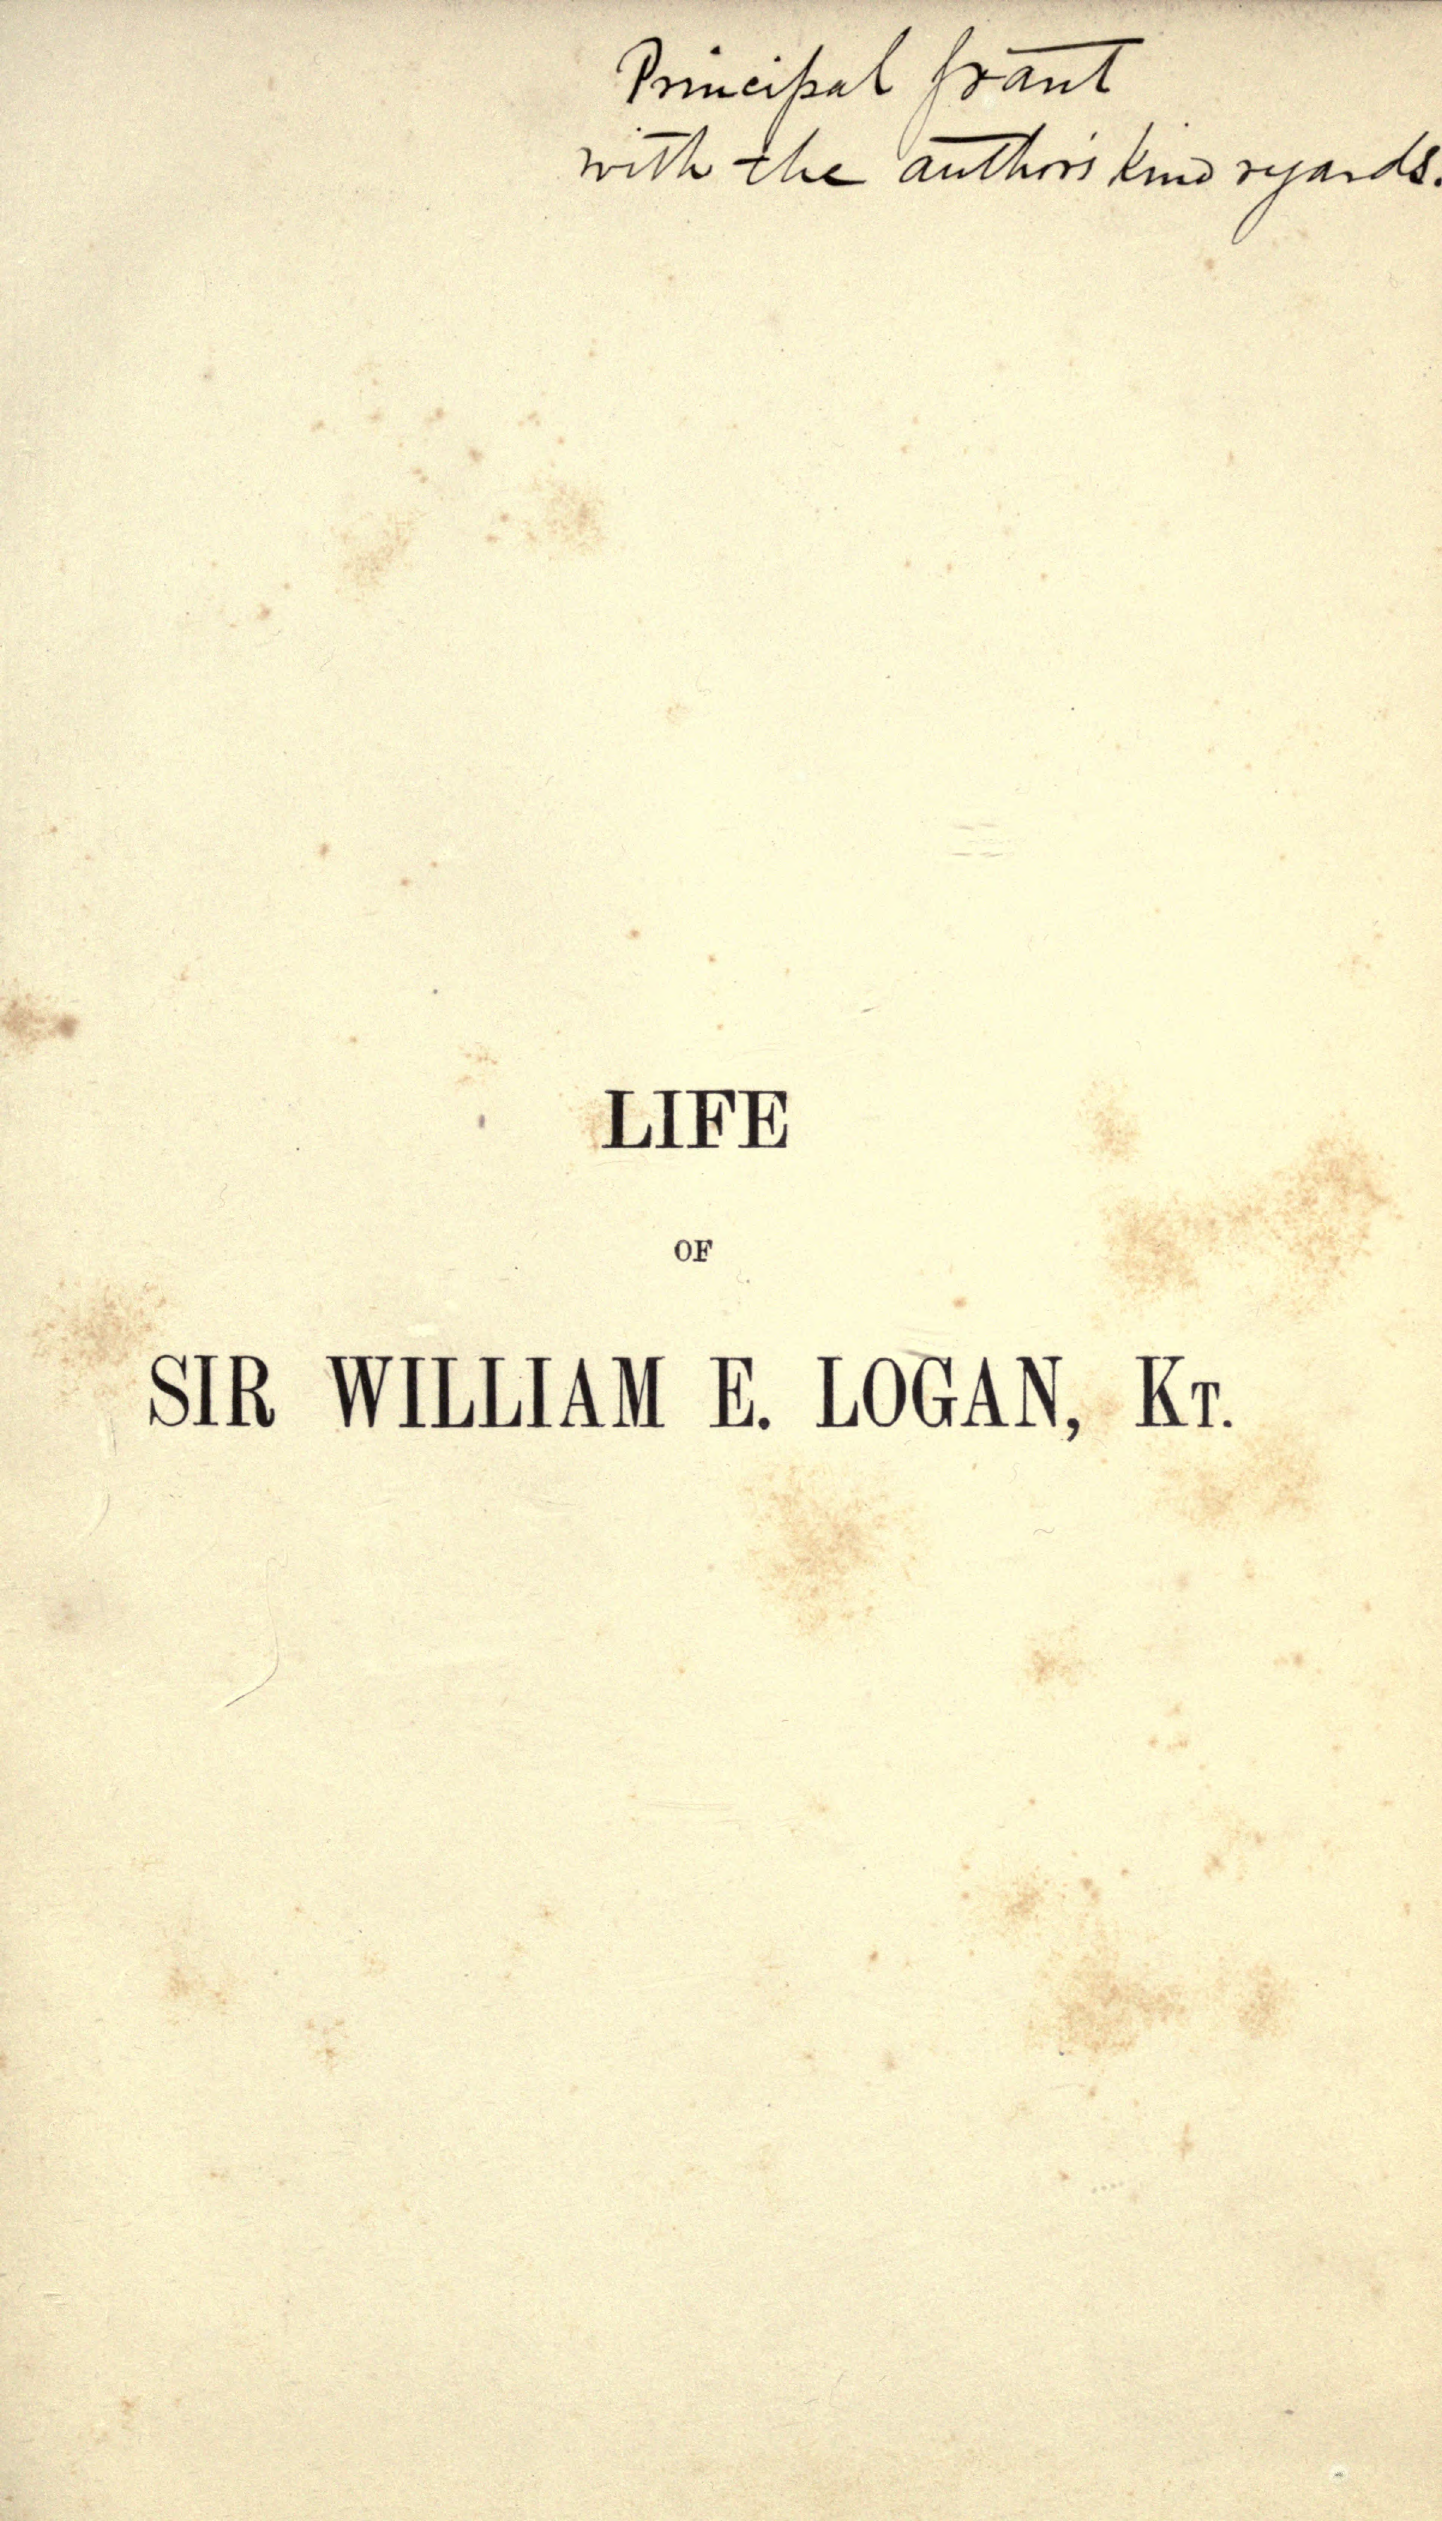 Principal Grant
with the author's kind regards.
LIFE
OF
SIR WILLIAM E. LOGAN, KT.